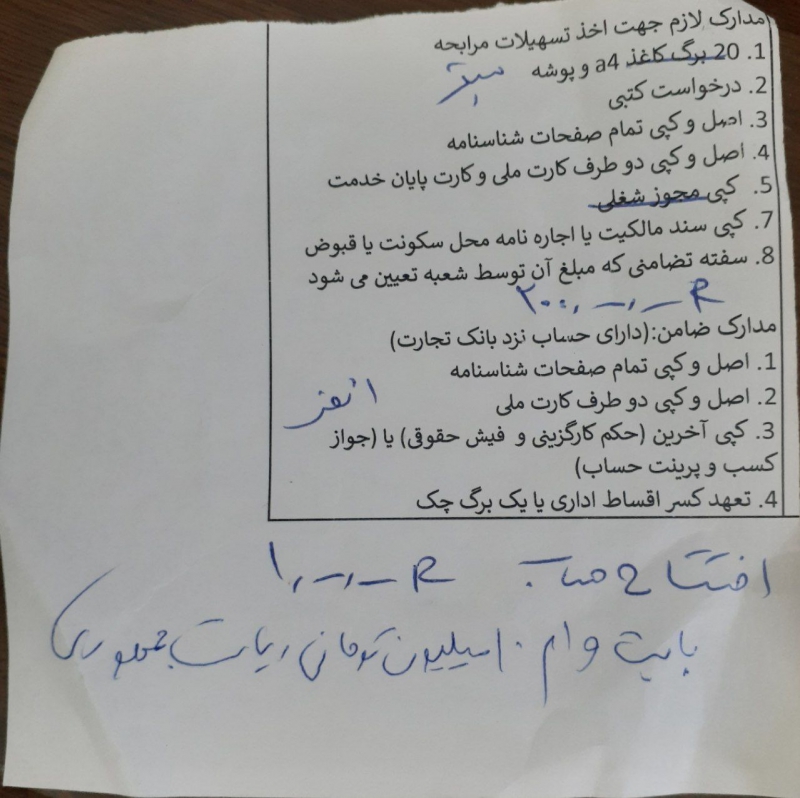 مدارک لازم جهت اخذ تسهیلات مرابحه
1. 20 برگ کاغذ a4 و پوشه سبز
2. درخواست کتبی
3. اصل و کپی تمام صفحات شناسنامه
4. اصل و کپی دو طرف کارت ملی و کارت پایان خدمت
5. کپی مجوز شغلی
7. کپی سند مالکیت یا اجاره نامه محل سکونت یا قبوض
8. سفته تضامنی که مبلغ آن توسط شعبه تعیین می شود
مدارک ضامن:(دارای حساب نزد بانک تجارت)
1. اصل و کپی تمام صفحات شناسنامه
2. اصل و کپی دو طرف کارت ملی
۱ نفر
3. کپی آخرین (حکم کارگزینی و فیش حقوقی) یا (جواز
کسب و پرینت حساب)
4. تعهد کسر اقساط اداری یا یک برگ چک
افتتاح حساب
بابت وام ۱۰ میلیون تومانی ریاست جمهوری